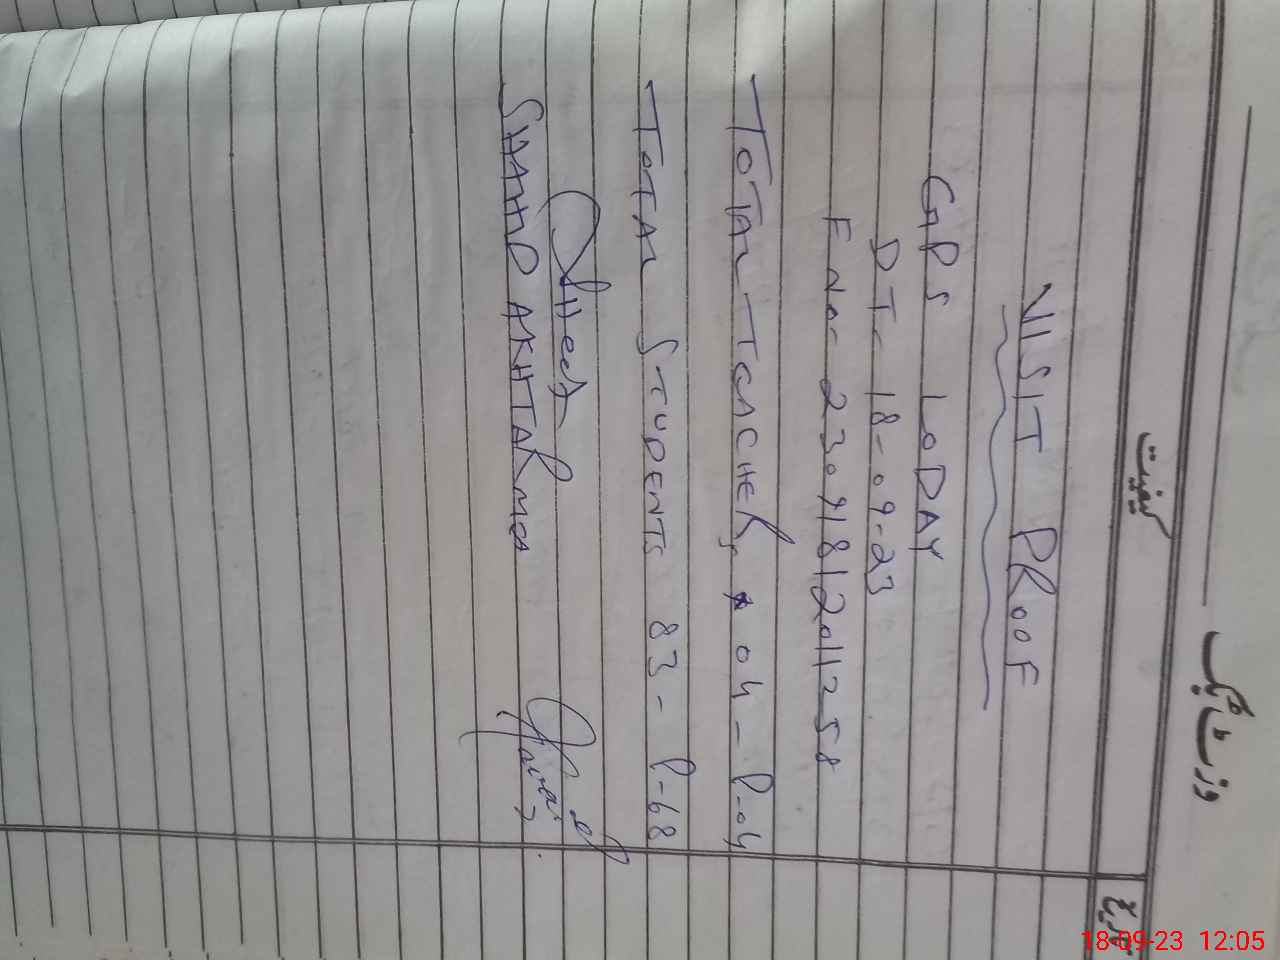 وزٹنگ بک
کیفیت
تاریخ
VISIT PROOF
GPS LODAY
DT- 18-09-23
E No- 230918120111258
TOTAL TEACHERS 04- P-04
TOTAL STUDENTS 83- P-68
SHAHID AKHTAR
18-09-23 12:05